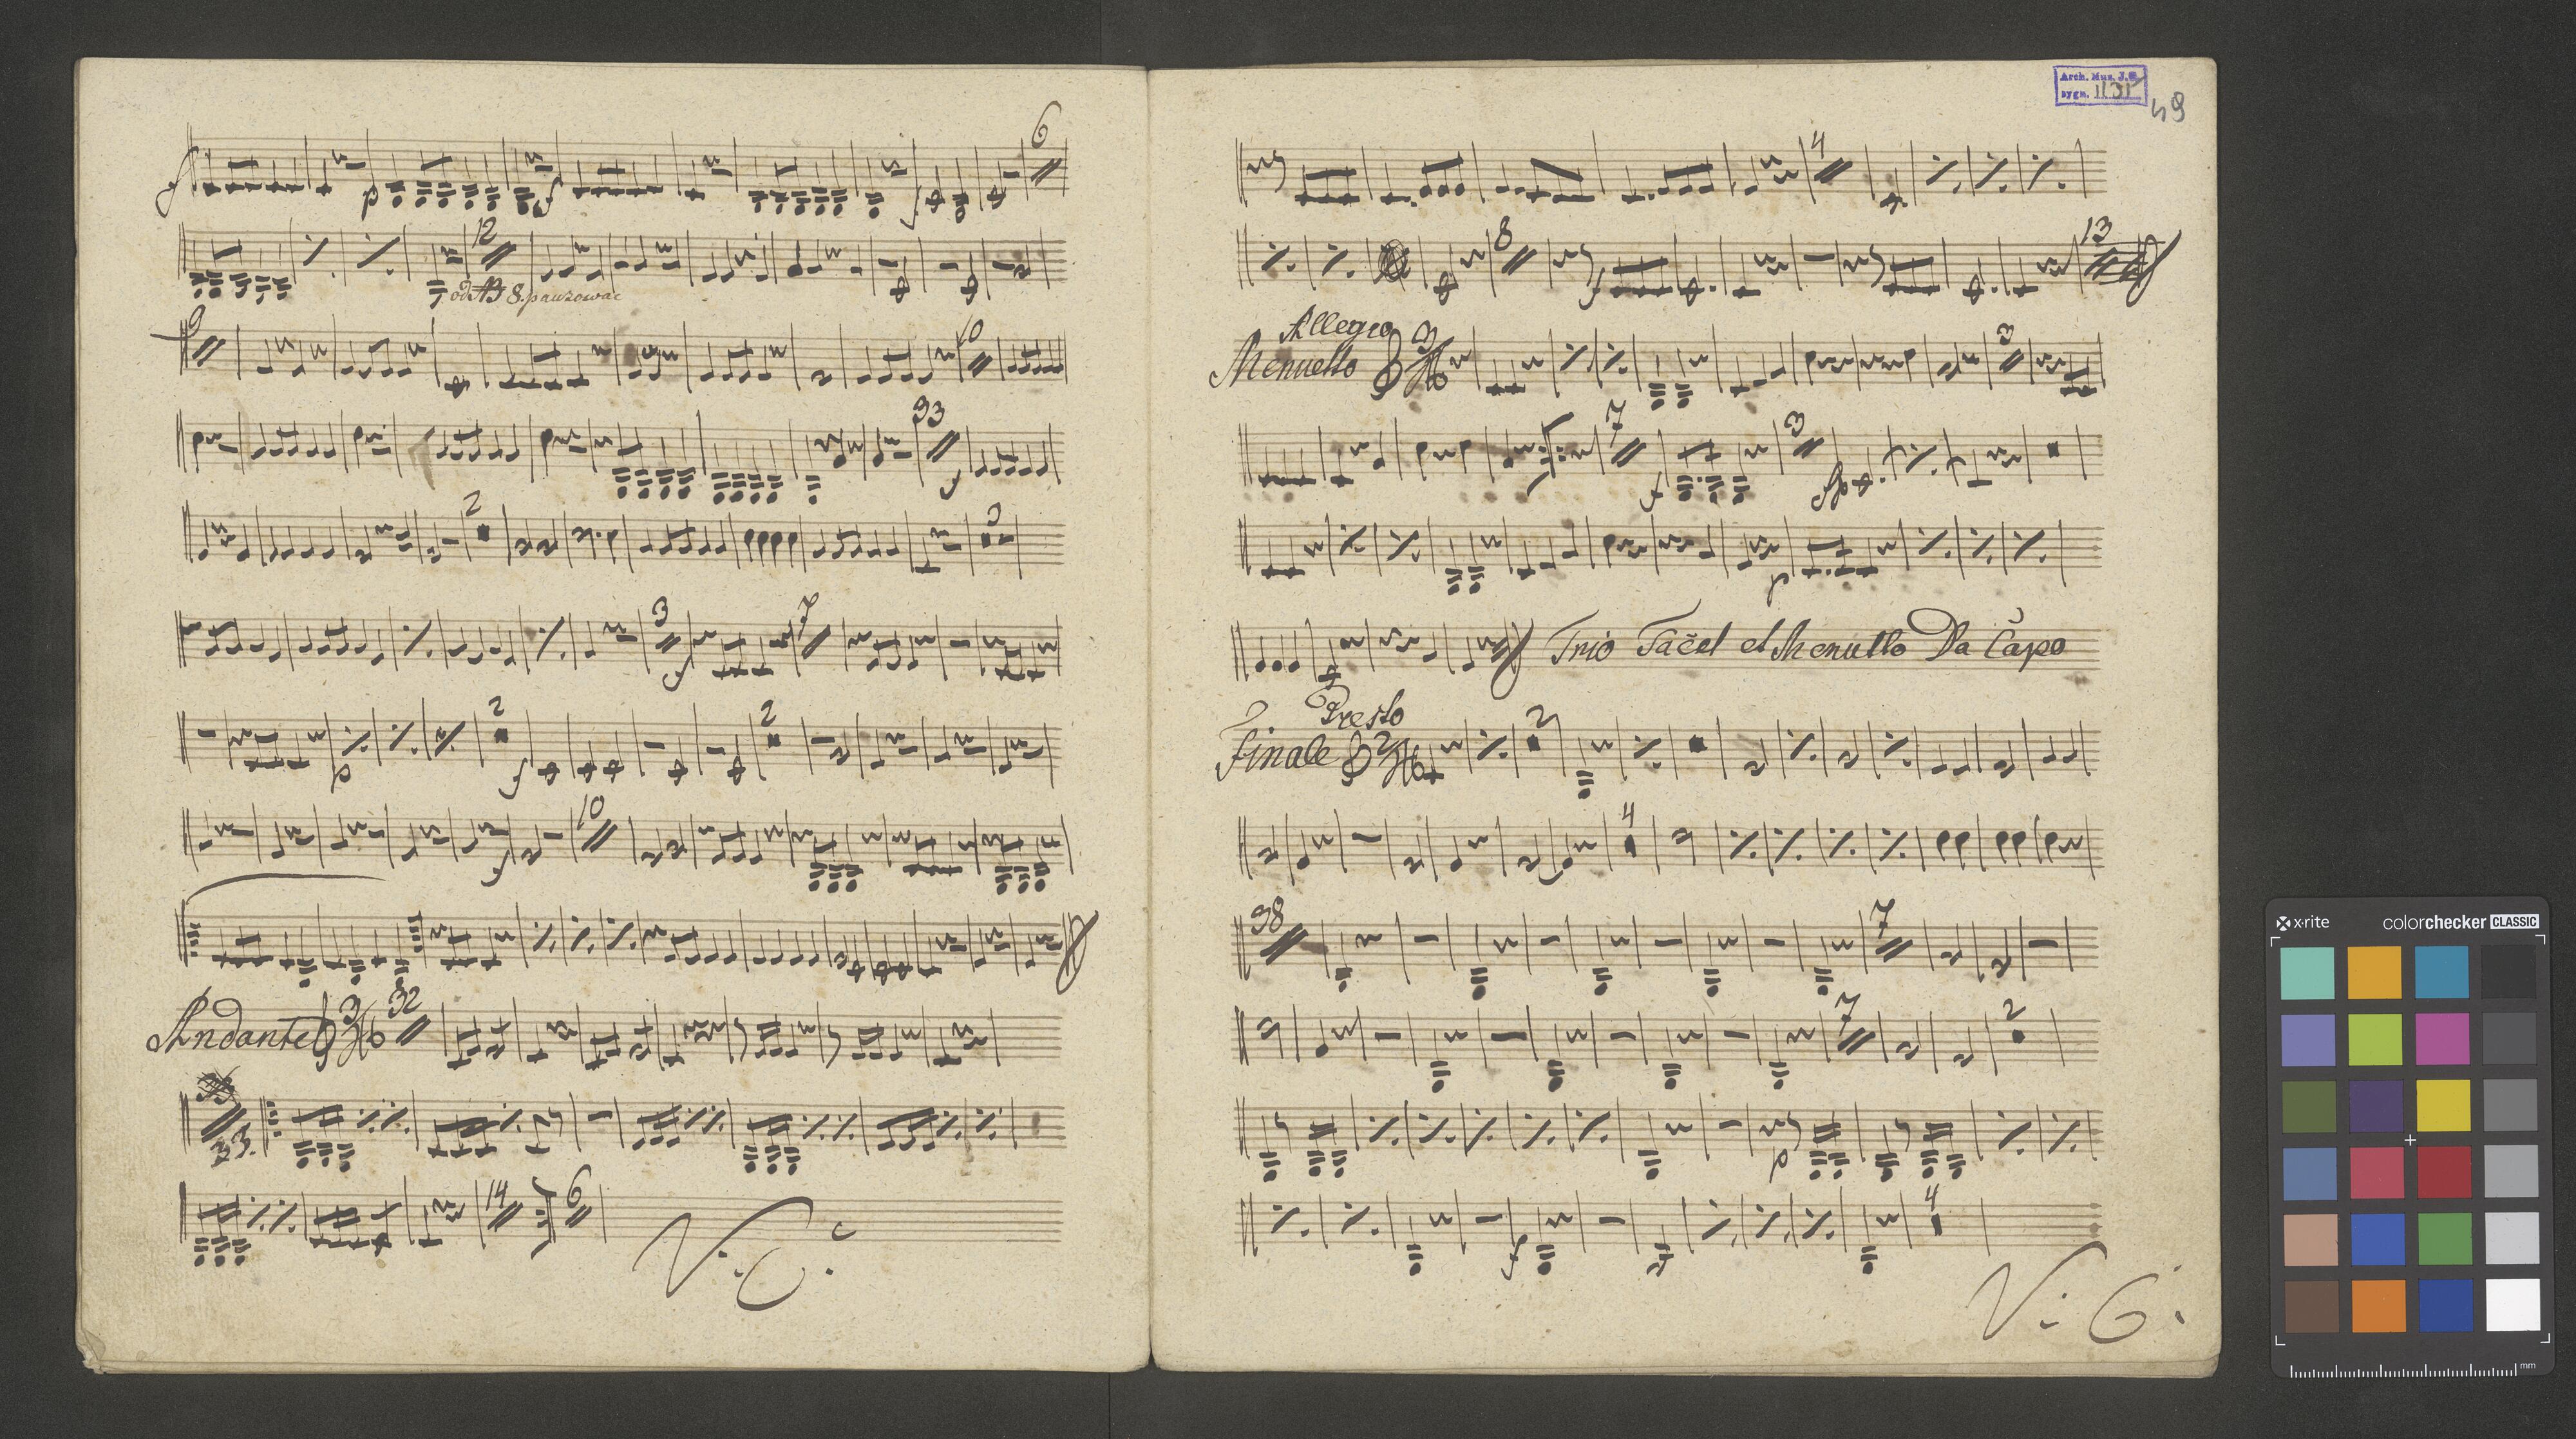 6
p f f
12
od 8. pauzować
9 10
33
f
2 2
3 7
f
2 2
p f
10
f
Andante 3/4 32
33.
14 6
V: S:
Arch. Muz. J.G.
sygn. II 31
49
4
8 13
f
Allegro
Menuetto 3/4 3
7 3
f fp
p
Trio Tacet et Menuetto Da Capo
Presto
Finale 2/4 2
4
38 7
7 2
p
4
f
V: S:
x-rite colorchecker CLASSIC
mm